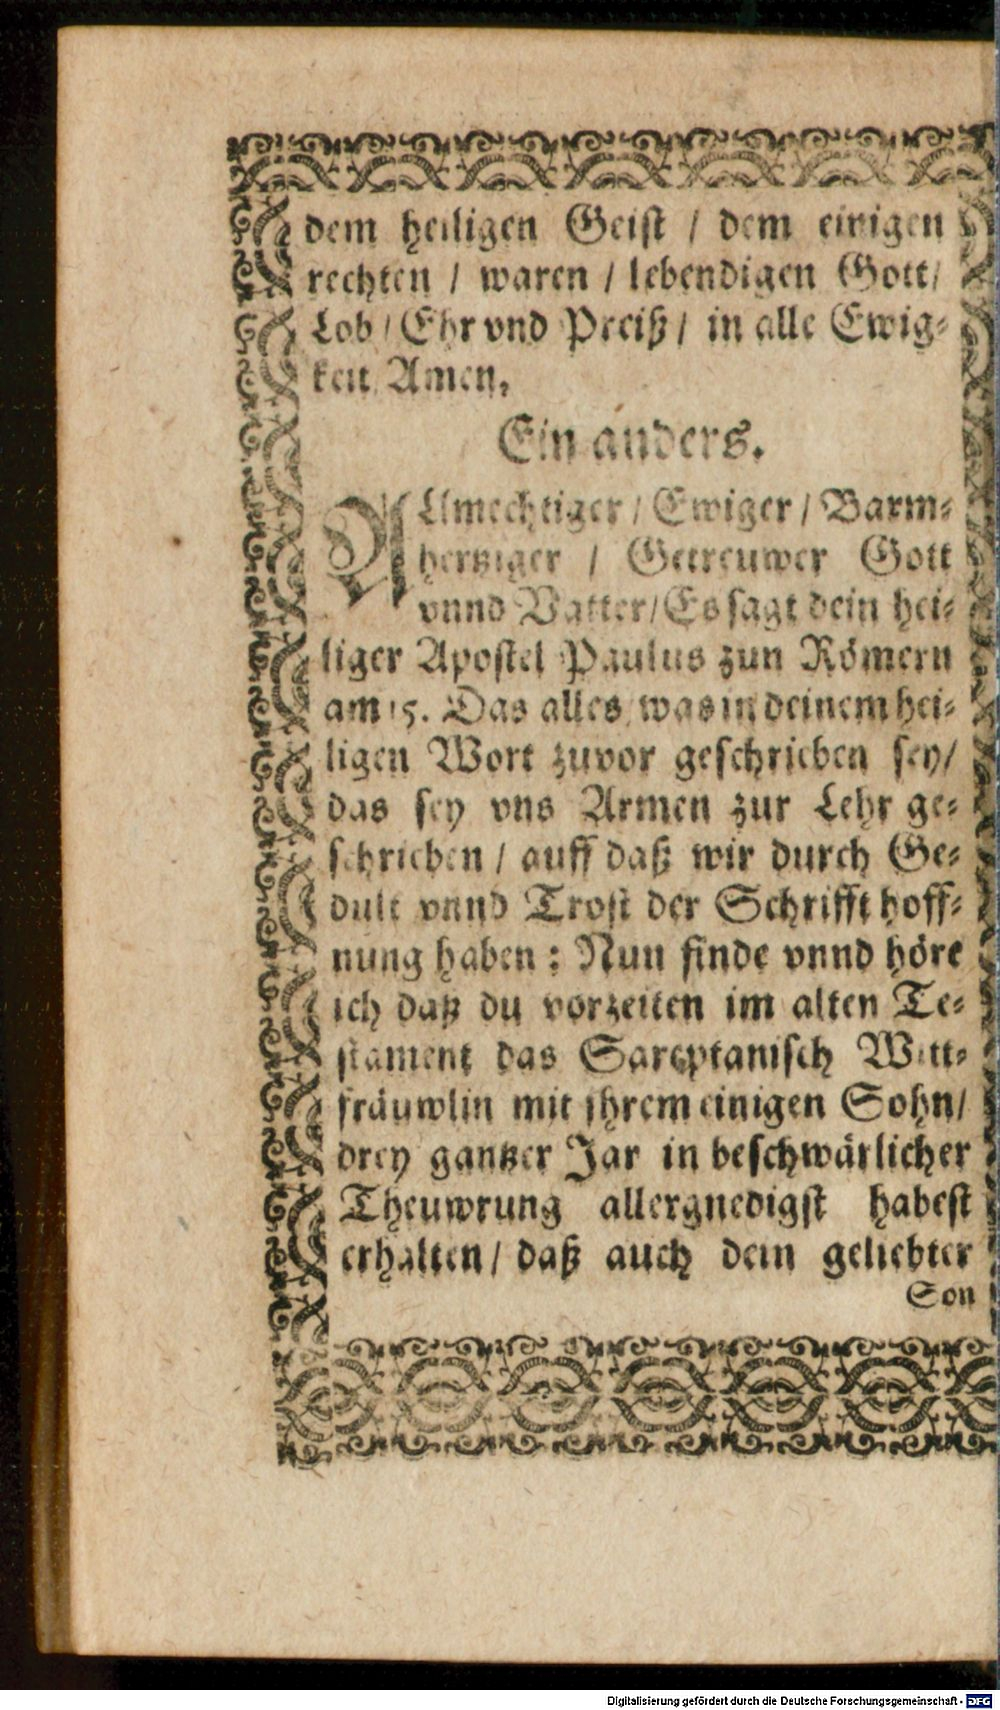 dem heiligen Geist / dem einigen
rechten / waren / lebendigen Gott /
Lob / Ehr vnd Preiß / in alle Ewig-
keit Amen,
Ein anders.
ALlmechtiger / Ewiger / Barm-
hertziger / Getreuwer Gott
vnnd Vatter / Es sagt dein hei-
liger Apostel Paulus zun Römern
am 15. Das alles was in deinem hei-
ligen Wort zuvor geschrieben sey /
das sey vns Armen zur Lehr ge-
schrieben / auff daß wir durch Ge-
dult vnnd Trost der Schrifft hoff-
nung haben : Nun finde vnnd höre
ich daß du vorzeiten im alten Te-
stament das Sareptanisch Witt-
fräuwlin mit jhrem einigen Sohn /
drey gantzer Jar in beschwärlicher
Theuwrung allergnedigst habest
erhalten / daß auch dein geliebter
Son
Digitalisierung gefördert durch die Deutsche Forschungsgemeinschaft - DFG